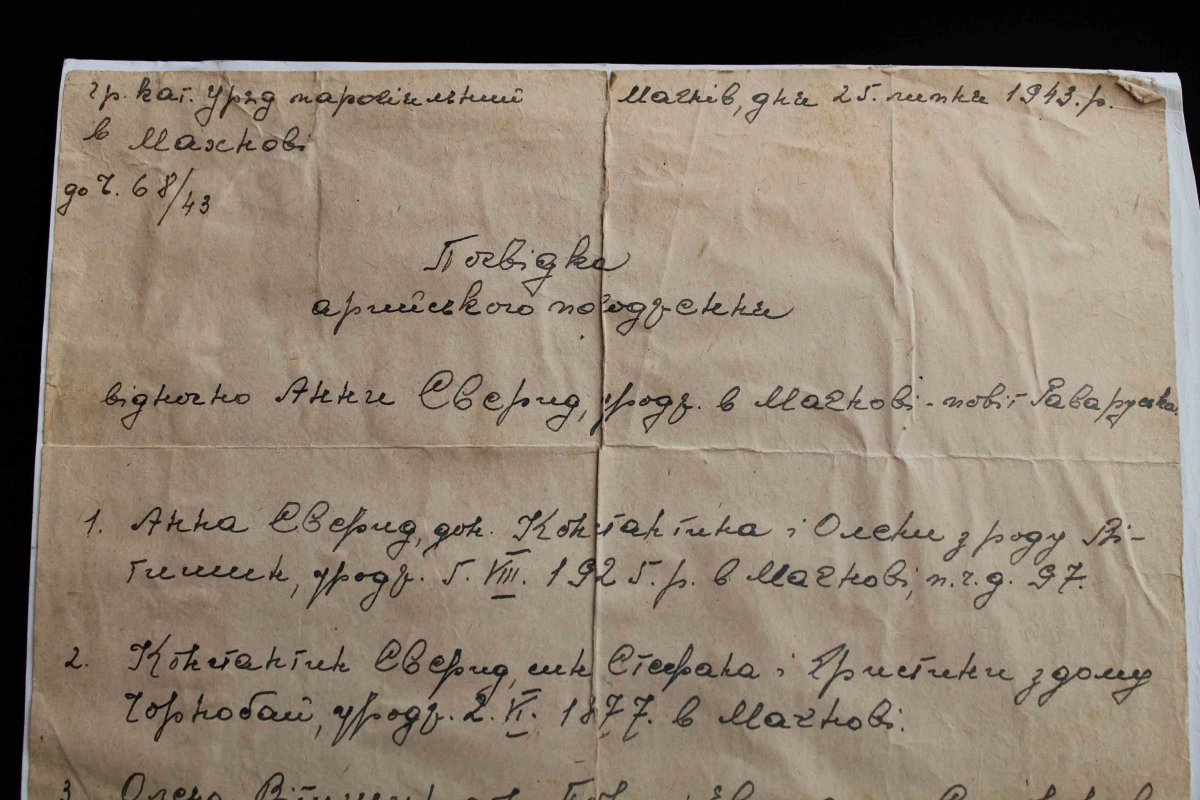 гр. кат. Уряд парохіяльний
Мачнів, дня 25. липня 1943. р.
в Махнові
до Ч. 68/43
Посвідка
арийського походження
відносно Анни Сверид, урод. в Мачнові - повіт Рава руска.
1. Анна Сверид, дон. Константина і Олени з роду Ві-
тишин, урод. 5. VIII. 1925. р. в Мачнові, п. ч. д. 97.
2. Константин Сверид, син Стефана і Христини з дому
Чорнобай, урод. 2. VI. 1877. в Мачнові.
3. Олена